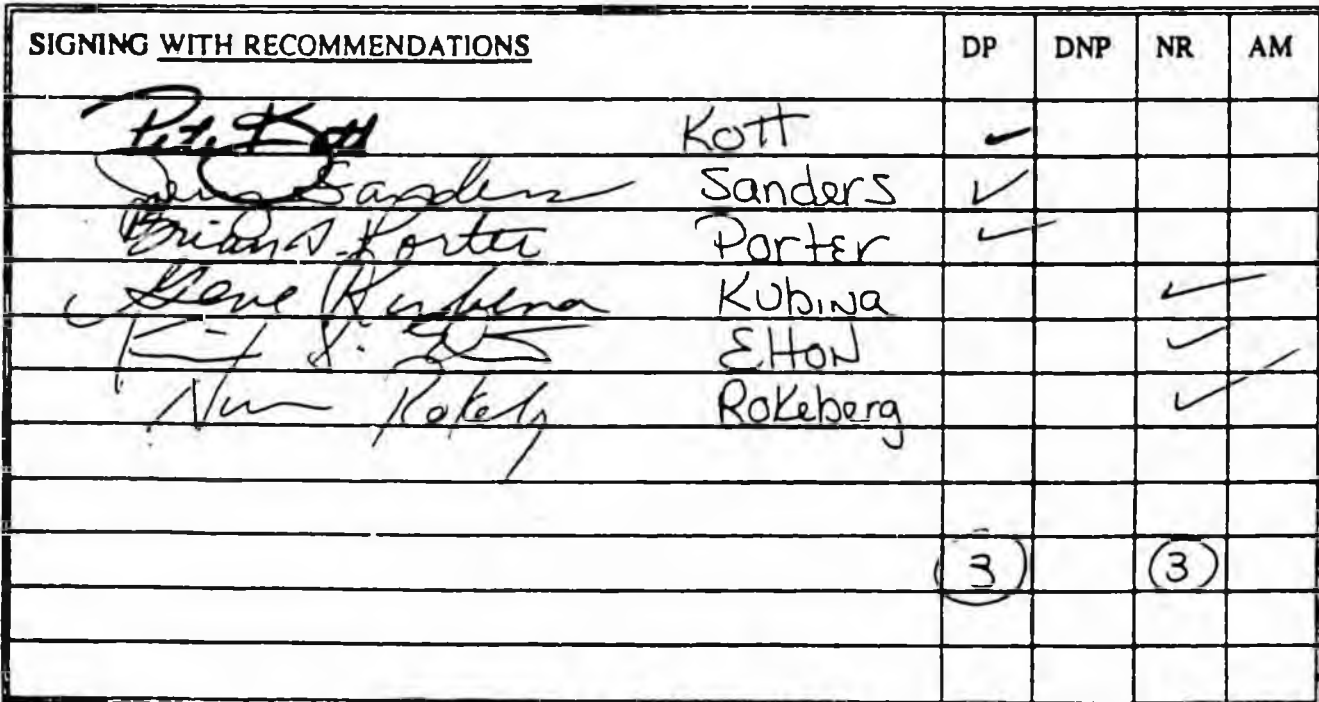 SIGNING WITH RECOMMENDATIONS DP DNP NR AM
Pete Kott Kott ✓
Jerry Sanders Sanders ✓
Brian S. Porter Porter ✓
Gene Kubina Kubina ✓
Elton ✓
Rokeberg ✓
3 3